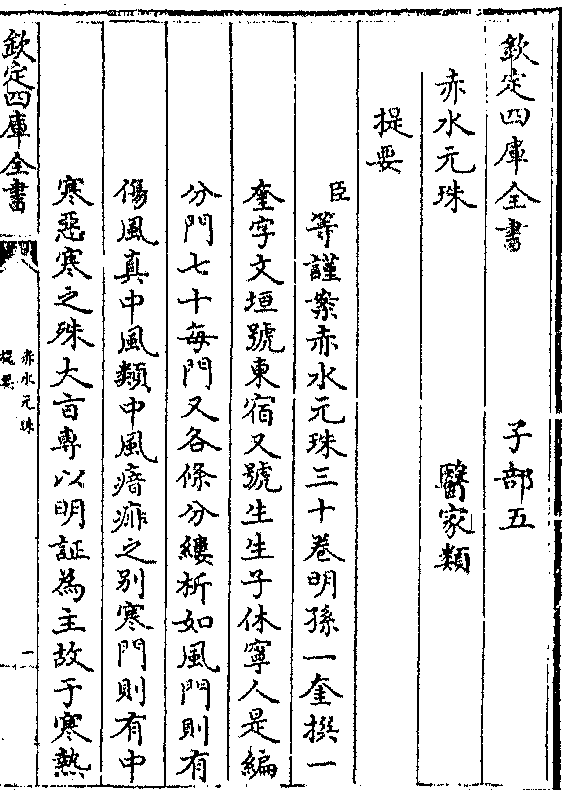 欽定四庫全書 子部五
赤水元珠 醫家類
提要
臣等謹案赤水元珠三十卷明孫一奎撰一
奎字文垣號東宿又號生生子休寧人是編
分門七十每門又各條分縷析如風門則有
傷風真中風類中風瘖痱之别寒門則有中
寒惡寒之殊大㫖專以明証為主故于寒熱
欽定四庫全書
赤水元珠
提要
一